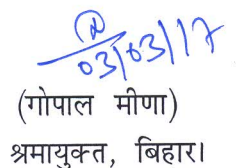 03/03/17
(गोपाल मीणा)
श्रमायुक्त, बिहार।